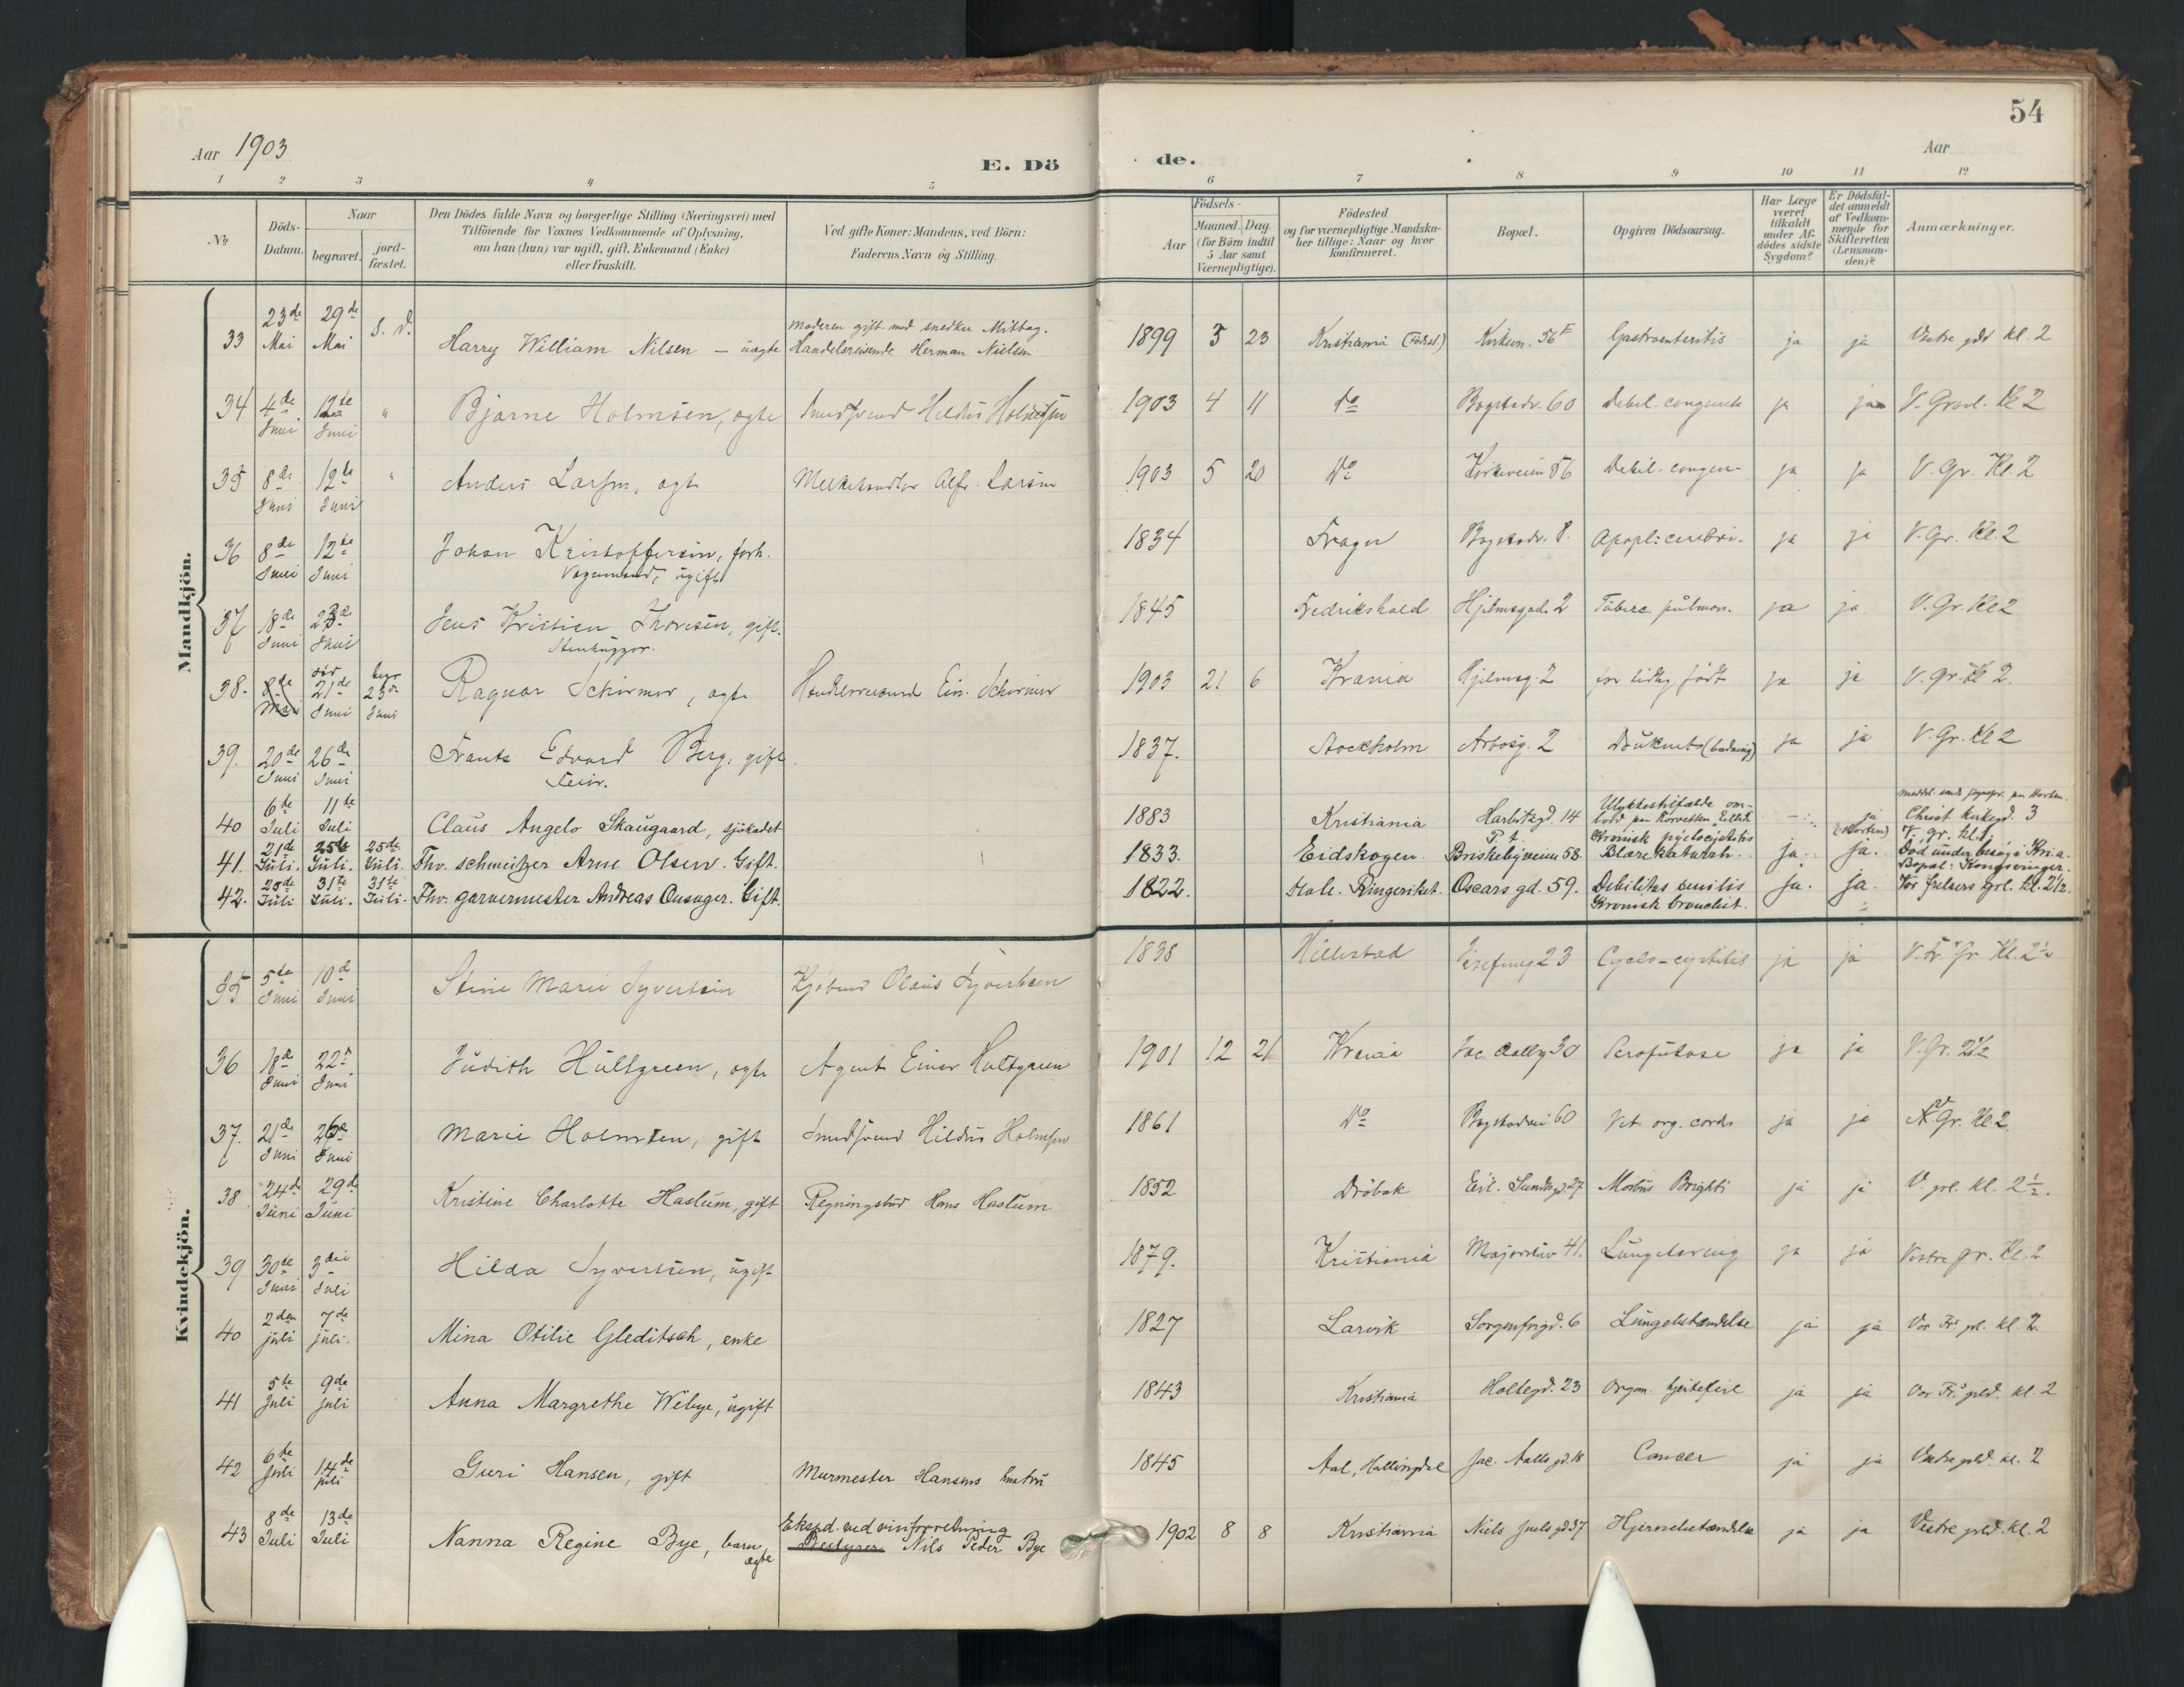 54
Aar 1903
E. Dö de.
Aar
1 2 3 4 5 6 7 8 9 10 11 12
№
Döds-Datum.
Naar
begravet.
jord-fæstet.
Den Dödes fulde Navn og borgerlige Stilling (Næringsvei) med
Tilföiende for Voxnes Vedkommende af Oplysning,
om han (hun) var ugift, gift, Enkemand (Enke)
eller fraskilt.
Ved gifte Koner: Mandens, ved Börn:
Faderens Navn og Stilling.
Födsels-
Aar
Maaned. Dag.
(for Börn indtil
5 Aar samt
Værnepligtige).
Födested
og for værnepligtige Mandsku-
ber tillige: Naar og hvor
konfirmeret.
Bopæl.
Opgiven Dödsaarsag.
Har Læge
været
tilkaldt
under Af-
dödes sidste
Sygdom?
Er Dödsfal-
det anmeldt
af Vedkom-
mende for
Skifteretten
(Lensman-
den)?
Anmærkninger.
Mandkjön.
33 23de Mai 29de Mai S. d. Harry William Nilsen – uægte Moderen gift med snedker Mittag. Handelsreisende Herman Nielsen 1899 5 23 Kristiania Kirkev. 56 Gastroenteritis ja ja Vestre gvl kl. 2
34 4de Juni 12te Juni " Bjarne Holmsen, ægte 1903 4 11 do Bogstadv. 60 Debil. congenit ja ja V. Gravl. Kl 2
35 8de Juni 12te Juni " Anders Larsen, ægte Melkehandler Alfr. Larsen 1903 5 20 do Kirkeveien 56 Debil. congen. ja ja V. Gr. Kl. 2
36 8de Juni 12te Juni Johan Kristoffersen, forh. Vognmand, ugift 1834 Bogstadv. 8. Apopl: cerebri. ja ja V. Gr. Kl. 2
37 18de Juni 23de Juni Jens Kristian Thoresen, gift. Stenhugger. 1845 Fredrikshald Hjelmsgad. 2 Tuberc. pulmon. ja ja V. Gr. Kl 2
38. 8de Mai 21de Juni 23de Juni Ragnar Schirmer, ægte Ein. Schirmer 1903 21 6 Krania Hjelmsg. 2 for tidlig födt ja ja V. Gr. Kl 2.
39. 20de Juni 26de Juni Frantz Edvard Berg, gift. 1837. Stockholm Arbosg. 2 Druknet (badning) ja ja V. Gr. Kl 2
40 6te Juli 11te Juli Claus Angelo Skaugaard, sjökadet 1883 Kristiania Harbitzgd. 14 Ulykkestilfælde om-bord paa Korvetten Ellida – ja (Horten) Christ kirkegd. 3
41. 21de Juli. 25de Juli. 25de Juli. Fhv. schweitzer Arne Olsen. Gift. 1833. Eidskogen. P. t. Briskebyveien 58. Kronisk pyelocystitis Blærekatarrh. ja. ja. V. gr. kl. 1. Död under besög i Kr.a. Bopæl: Kongsvinger.
42. 28de Juli 31te Juli. 31te Juli. Fhv. garvermester Andreas Onsager. Gift. 1822. Hole. Ringeriket. Oscars gd. 59. Debilitas senilis Kronisk bronchit. ja. ja. Vor frelsers grl. kl. 2½.
Kvindekjön.
35 5te Juni 10de Juni Stine Marie Syvertsen Kjöbmd Olaus Syvertsen 1838 Hillestad Josefinesg 23 Cyclo-cystitis ja ja V. Fr. Gr Kl. 2½
36 18de Juni 22de Juni Judith Hultgreen, ægte Agent Einar Hultgreen 1901 12 21 Krania Jac. Aallsg 30 Scrofulose ja ja V. Gr. 2½
37. 21de Juni 26de Juni Marie Holmsen, gift 1861 do Bogstadvei 60 Vit. org. cordis ja ja Gr. Kl 2
38 24de Juni 29de Juni Kristine Charlotte Haslum, gift Hans Haslum 1852 Dröbak Eil. Sundsgd. 27 Morbus Brighti ja ja V. grl. kl. 2½.
39 30te Juni 3die Juli Hilda Syvertsen, ugift 1879. Kristiania Majorstuv 41. Lungetæring ja ja Vestre gr. Kl. 2
40 2den juli 7de juli. Mina Otilie Gleditsch, enke 1827 Larvik Sorgenfrigd. 6 Lungebetændelse ja ja Vor Fr. gl. kl. 2.
41 5te Juli 9de Juli Anna Margrethe Wibye, ugift 1843 Kristiania Holtegd. 23 Organ. hjertefeil ja ja Vor Fr. gvld. kl. 2
42 6te Juli 14de juli Guri Hansen, gift Murmester Hansens hustru 1845 Aal, Hallingdal Jac. Aalls gd. 18 Cancer ja ja Vestre gvld. kl. 2
43 8de Juli 13de Juli Nanna Regine Bye, barn, ægte Eksped. ved vinforretning Bestyrer Nils Peder Bye 1902 8 8 Kristiania Niels Juels gd 37 Hjernebetændelse ja ja Vestre gvld. kl. 2